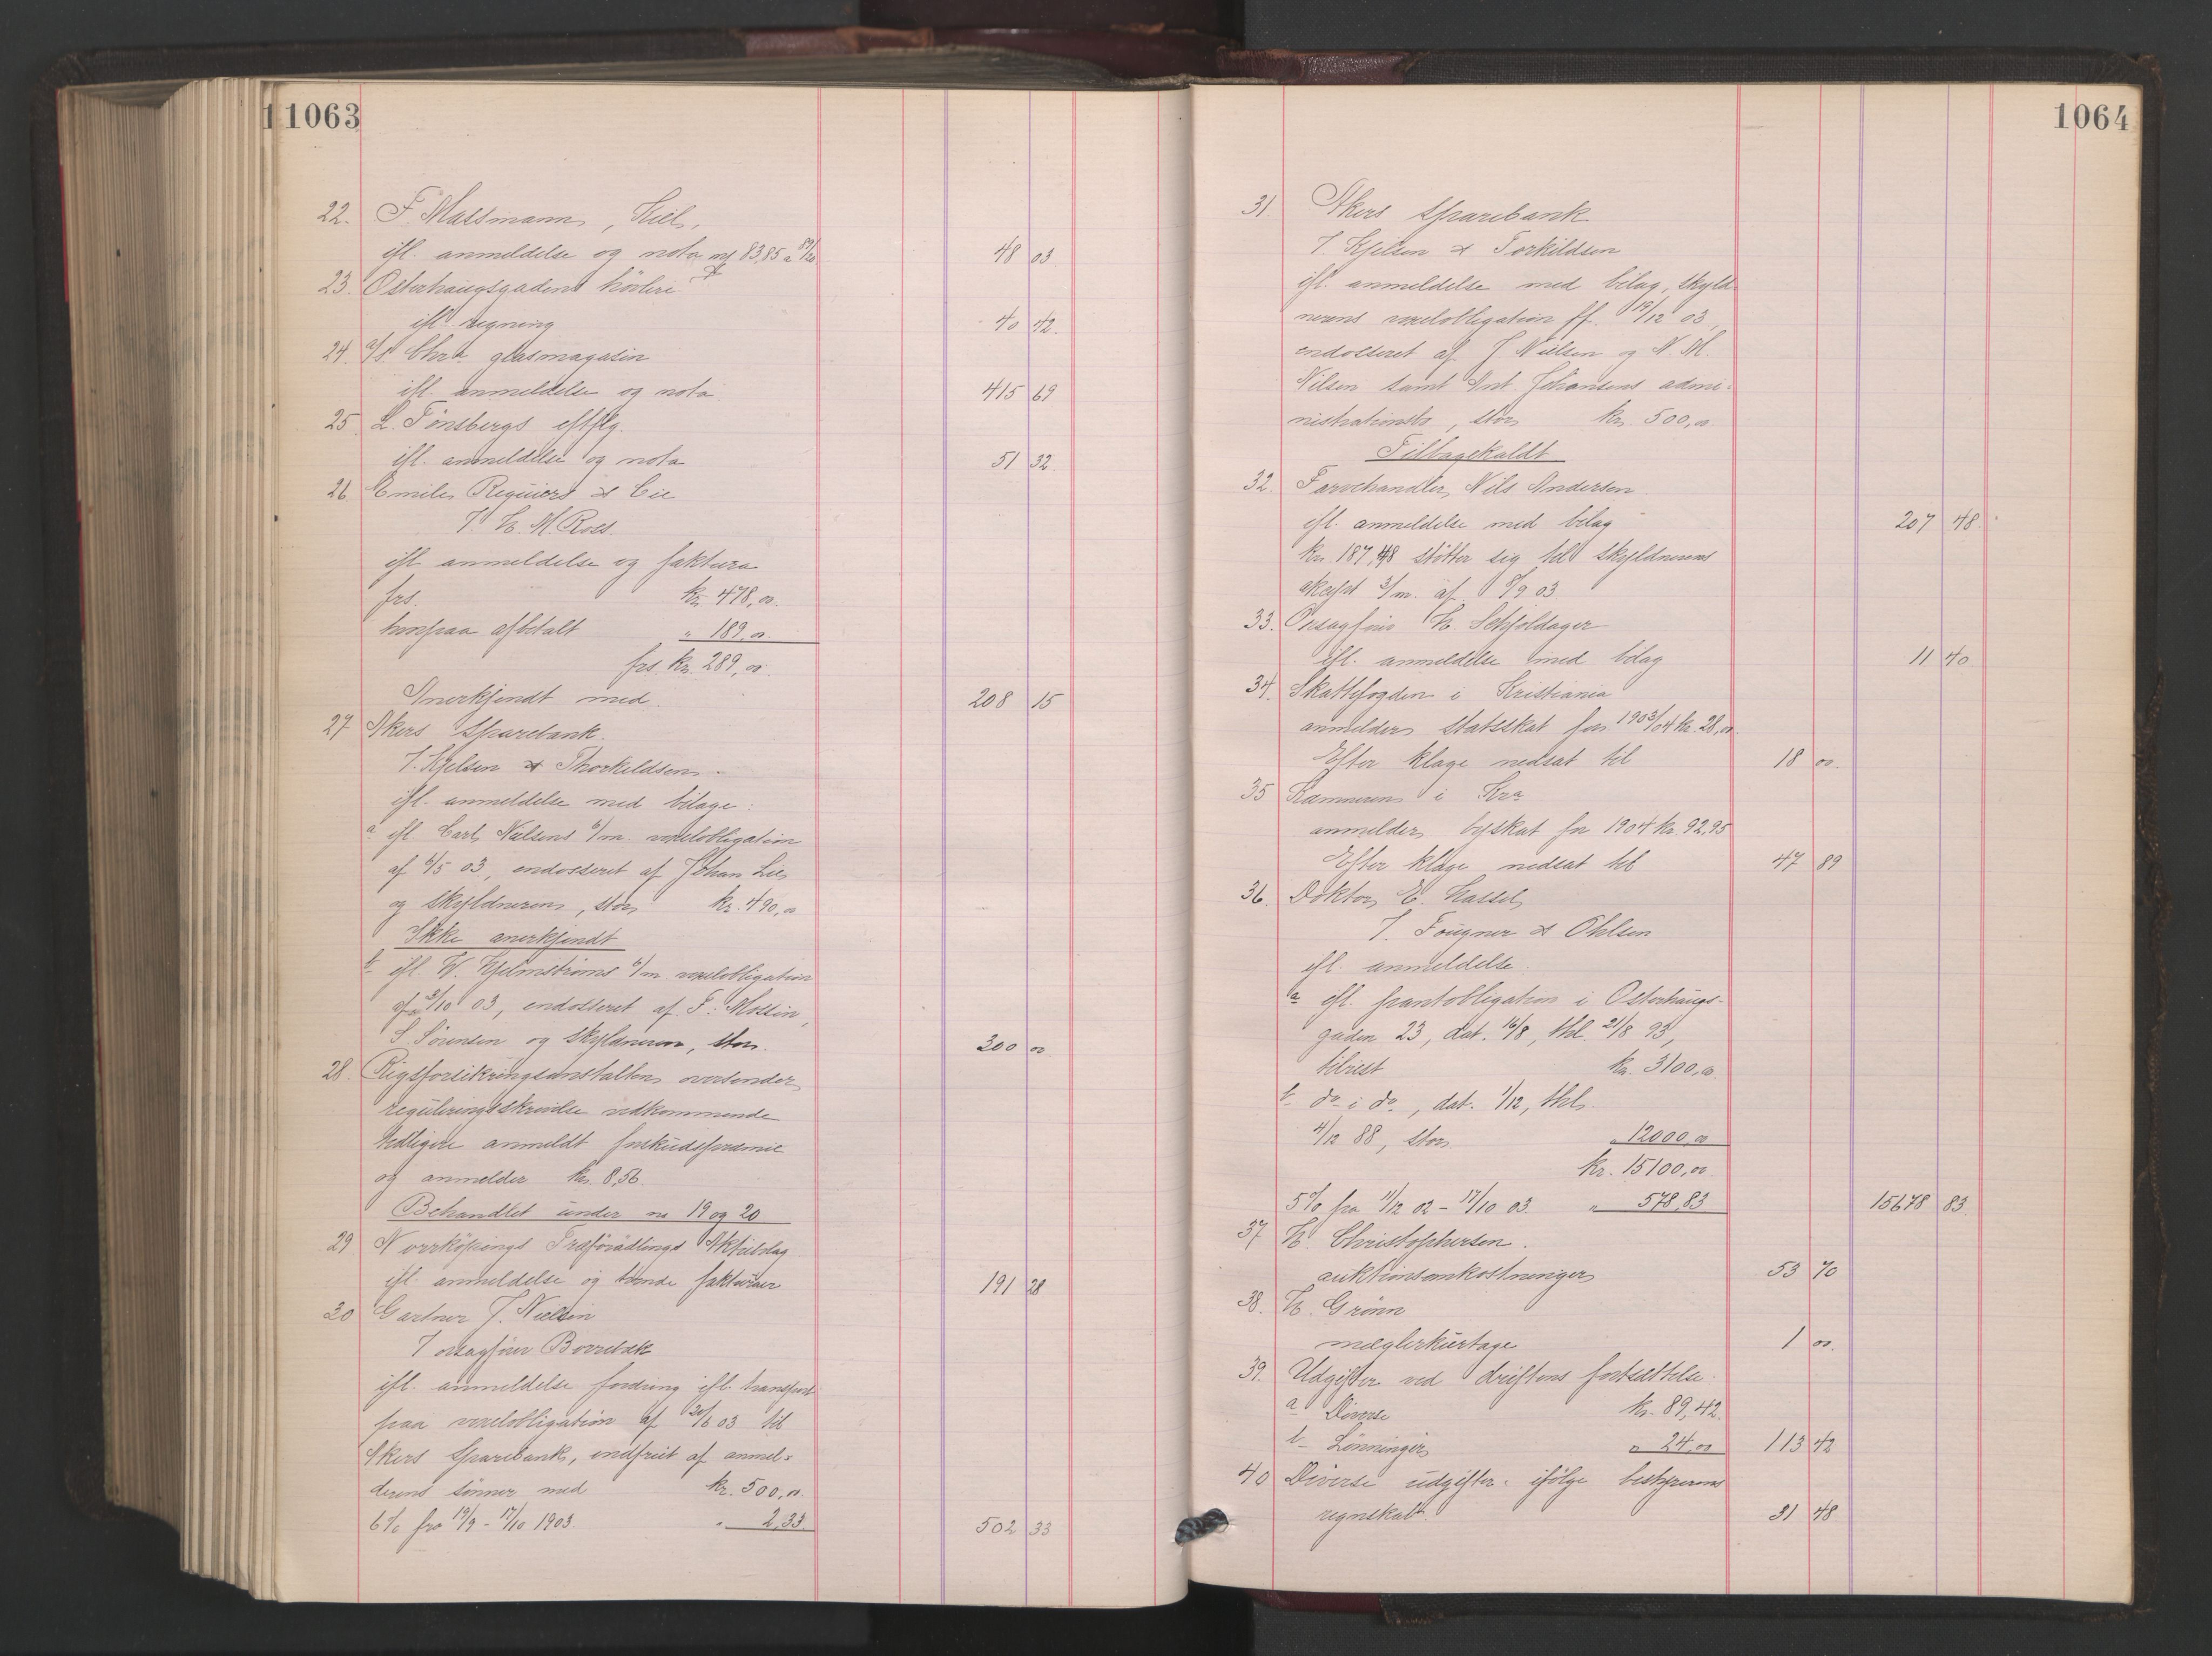 11063
22. F. Massmann, Kiel,
ifl. anmeldelse og nota mf 83,85 a 89/20 48 03
23. Osterhaugsgadens høvleri
ifl. regning 40 42.
24. A/S. Chra glasmagasin
ifl. anmeldelse og nota. 415 69
25. L. Tønsbergs eftflg.
ifl. anmeldelse og nota 51 32
26. Emile Requiers & Cie
V. H. M. Roes.
ifl. anmeldelse og faktura
frs. kr. 478,00.
herpaa afbetalt " 189,00.
frs. kr. 289,00.
Anerkjendt med. 208 15
27 Akers Sparebank.
V. Kjelsen & Thorkildsen.
ifl. anmeldelse med bilage:
a ifl. Carl Nielsens 6/m. vexelobligation
af 6/5 03, endosseret af Johan Lie
og skyldneren, stor kr. 490,00
Ikke anerkjendt
b ifl. W. Hjelmstrøms 6/m. vexelobligation
af 3/10 03, endosseret af F. Mossin,
S. Sørensen og skyldneren, stor. 300 00.
28. Rigsforsikringsanstalten oversender
reguleringsskrivelse vedkommende
tidligere anmeldt forskudspræmie
og anmelder kr. 8,56.
Behandlet under no 19 og 20
29 Norrköpings Träförädlings Aktiebolag
ifl. anmeldelse og tvende fakturaer 191 28
30 Gartner J. Nielsen
V. orsagfører Borrebæk
ifl. anmeldelse fordring ifl. transport
paa vexelobligation af 20/6 03 til
Akers Sparebank, indfriet af anmel=
derens sønner med kr. 500,00.
6% fra 19/9 - 17/10 1903. " 2,33. 502 33
1064
31 Akers Sparebank
V. Kjelsen & Torkildsen
ifl. anmeldelse med bilag, skyld
nerens vexelobligation pf. 19/12 03,
endosseret af J. Nielsen og N. M.
Nilsen samt Ant. Johansens admi=
nistrationsbo, stor kr. 500,00
Tilbagekaldt
32. Farvehandler Nils Andersen
ifl. anmeldelse med bilag 207 48.
kr. 187,48 støtter sig til skyldnerens
akcept 3/m. af /9 03.
33. Orsagfører H. Schjoldager
ifl. anmeldelse med bilag 11 40
34. Skattefogden i Kristiania
anmelder statsskat for 1903/04 kr. 28,00.
Efter klage nedsat til 18 00.
35 Kæmneren i Kra
anmelder byskat for 1904 kr. 92,95
Efter klage nedsat til 47 89
36. Doktor E. Hassel
V. Fougner & Ohlsen
ifl. anmeldelse.
a ifl. pantobligation i Osterhaugs-
gaden 23, dat. 16/8, thl. 21/8 93,
tilrest kr. 3100,00.
b do i do, dat. 1/12, thl.
4/12 88, stor " 12000,00
kr. 15100,00
5% fra 11/12 02 - 17/10 03. " 578,83 15678 83.
37 H. Christophersen.
auktionsomkostninger 53 70
38. H. Grønn
mæglerkurtage 1 00.
39. Udgifter ved driftens fortsættelse.
a Diverse kr. 89,42.
b Lønninger " 24,00 113 42
40 Diverse udgifter ifølge bestyrerens
regnskab. 31 48